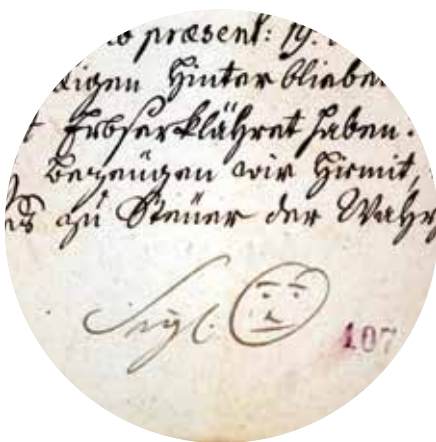 præsent: 19.
Hinterbliebe
Erbserklähret haben.
bezeugen wir hirmit,
zu Steüer der Wahr
Sigl.
107